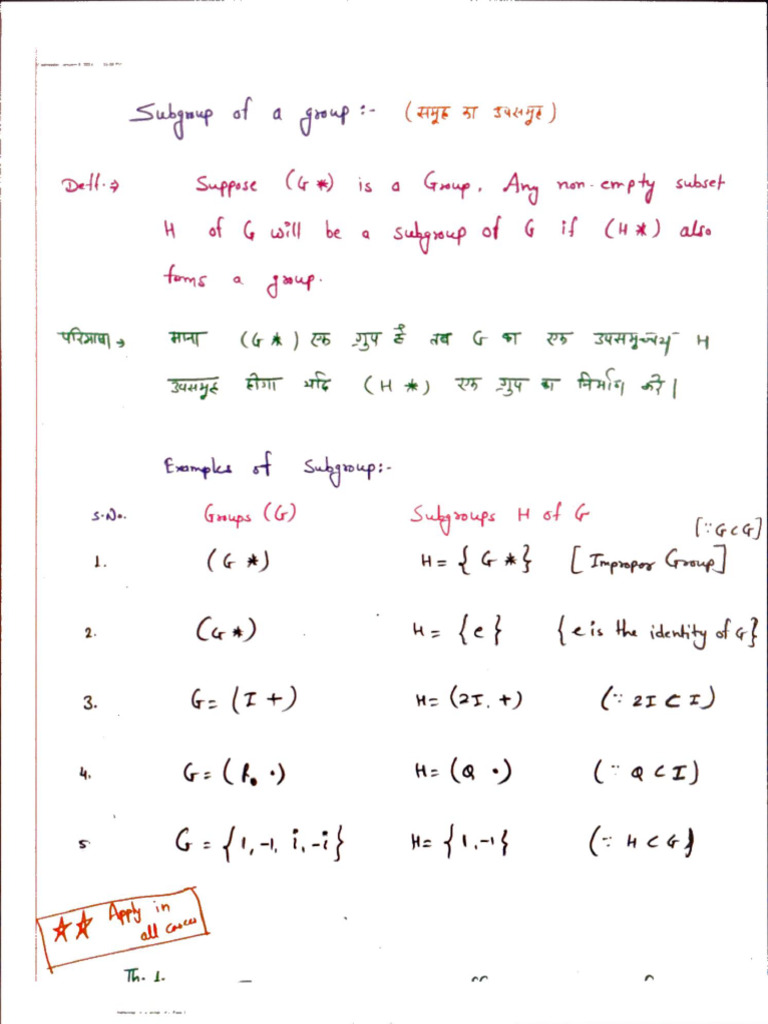 Subgroup of a group :- (समूह का उपसमूह)
Deff.→ Suppose (G *) is a Group. Any non-empty subset
H of G will be a subgroup of G if (H *) also
forms a group.
परिभाषा → माना (G *) एक ग्रुप है तब G का एक उपसमुच्चय H
उपसमूह होगा यदि (H *) एक ग्रुप का निर्माण करे।
Examples of Subgroup:-
S.No. Groups (G) Subgroups H of G [∵ G⊂G]
1. (G *) H = {G *} [Improper Group]
2. (G *) H = {e} {e is the identity of G}
3. G = (I +) H = (2I, +) (∵ 2I ⊂ I)
4. G = (R₀ ·) H = (Q ·) (∵ Q ⊂ I)
5 G = {1, -1, i, -i} H = {1, -1} (∵ H ⊂ G)
★★ Apply in
all cases
Th. 1.